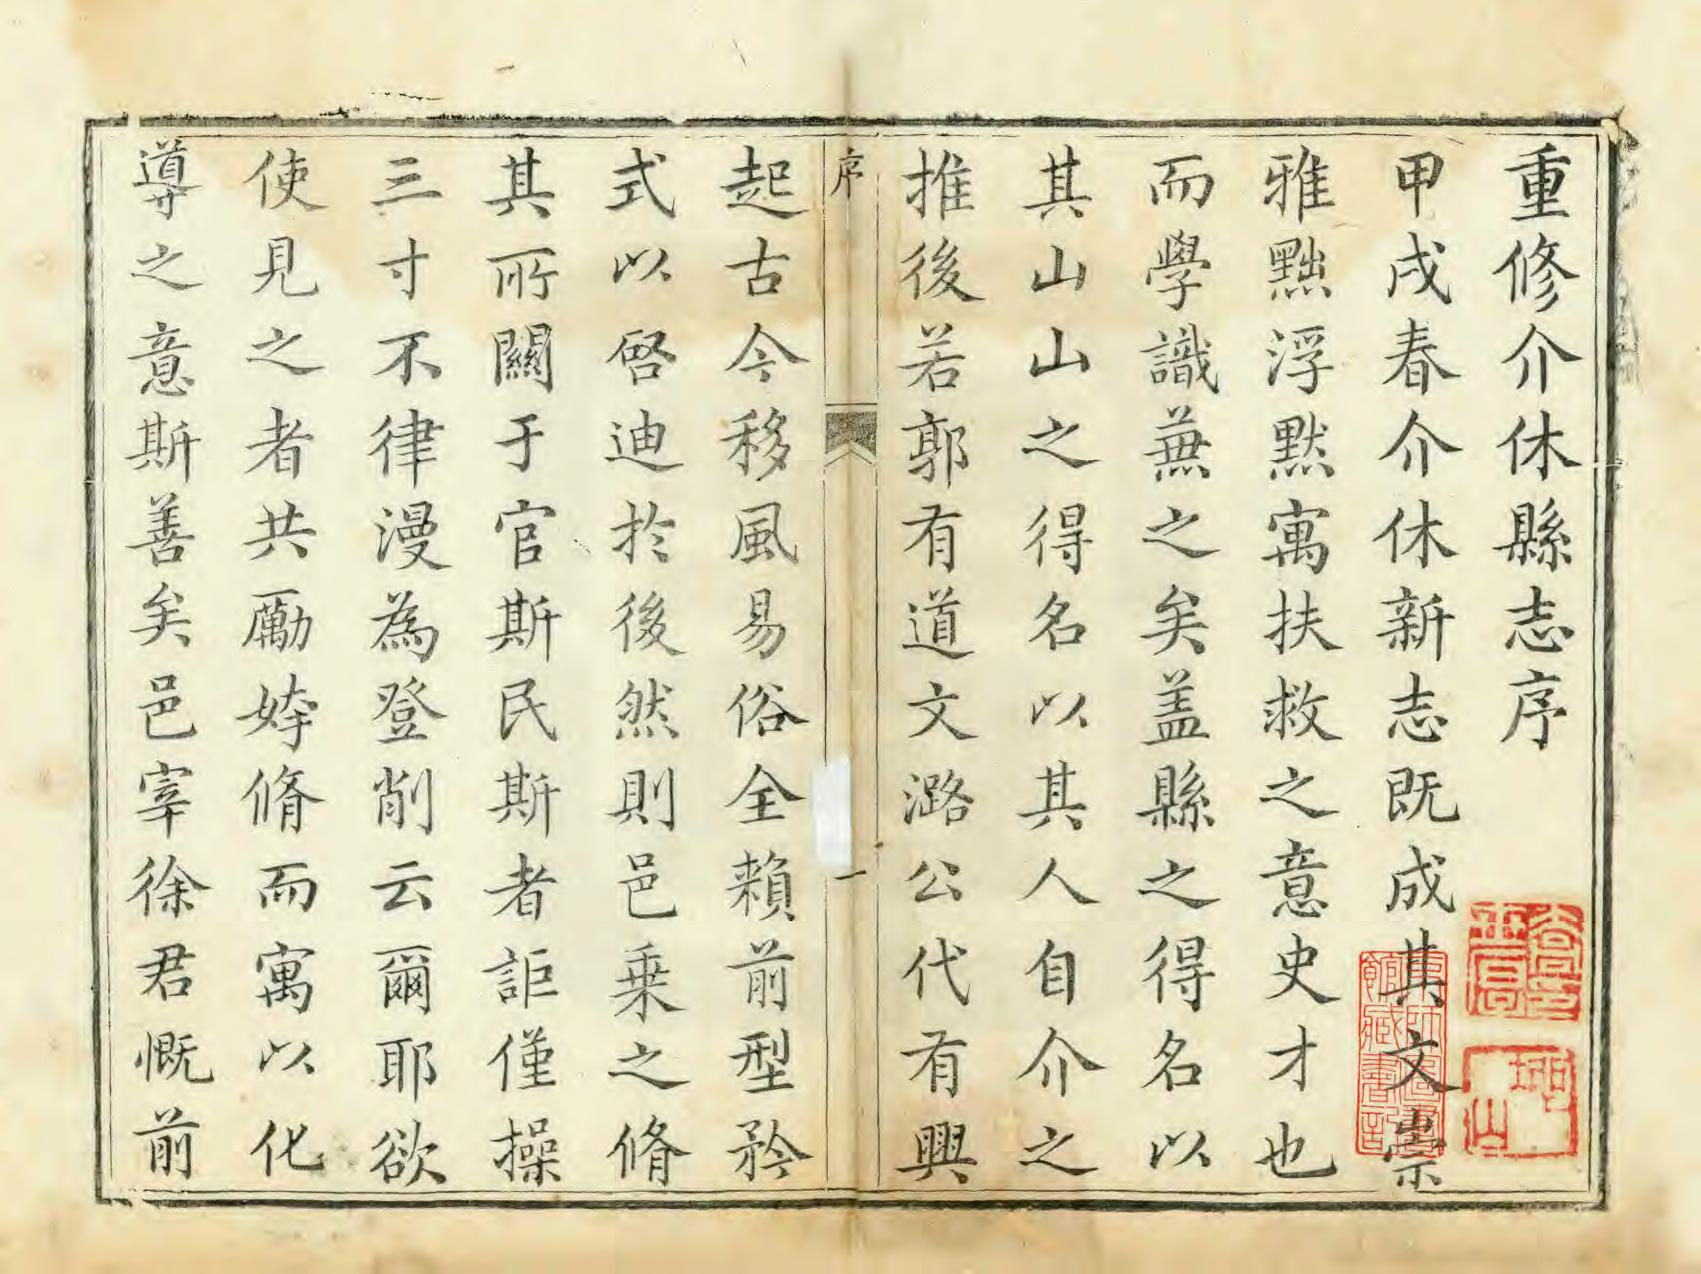 重修介休縣志序
甲戌春介休新志既成其文崇
雅黜浮黙寓扶救之意史才也
而學識蕪之矣盖縣之得名以
其山山之得名以其人自介之
推後若郭有道文潞公代有興
序
一
起古今移風易俗全賴前型矜
式以啓迪於後然則邑乗之脩
其所關于官斯民斯者詎僅操
三寸不律漫為登削云爾耶欲
使見之者共勵姱脩而寓以化
導之意斯善矣邑宰徐君慨前